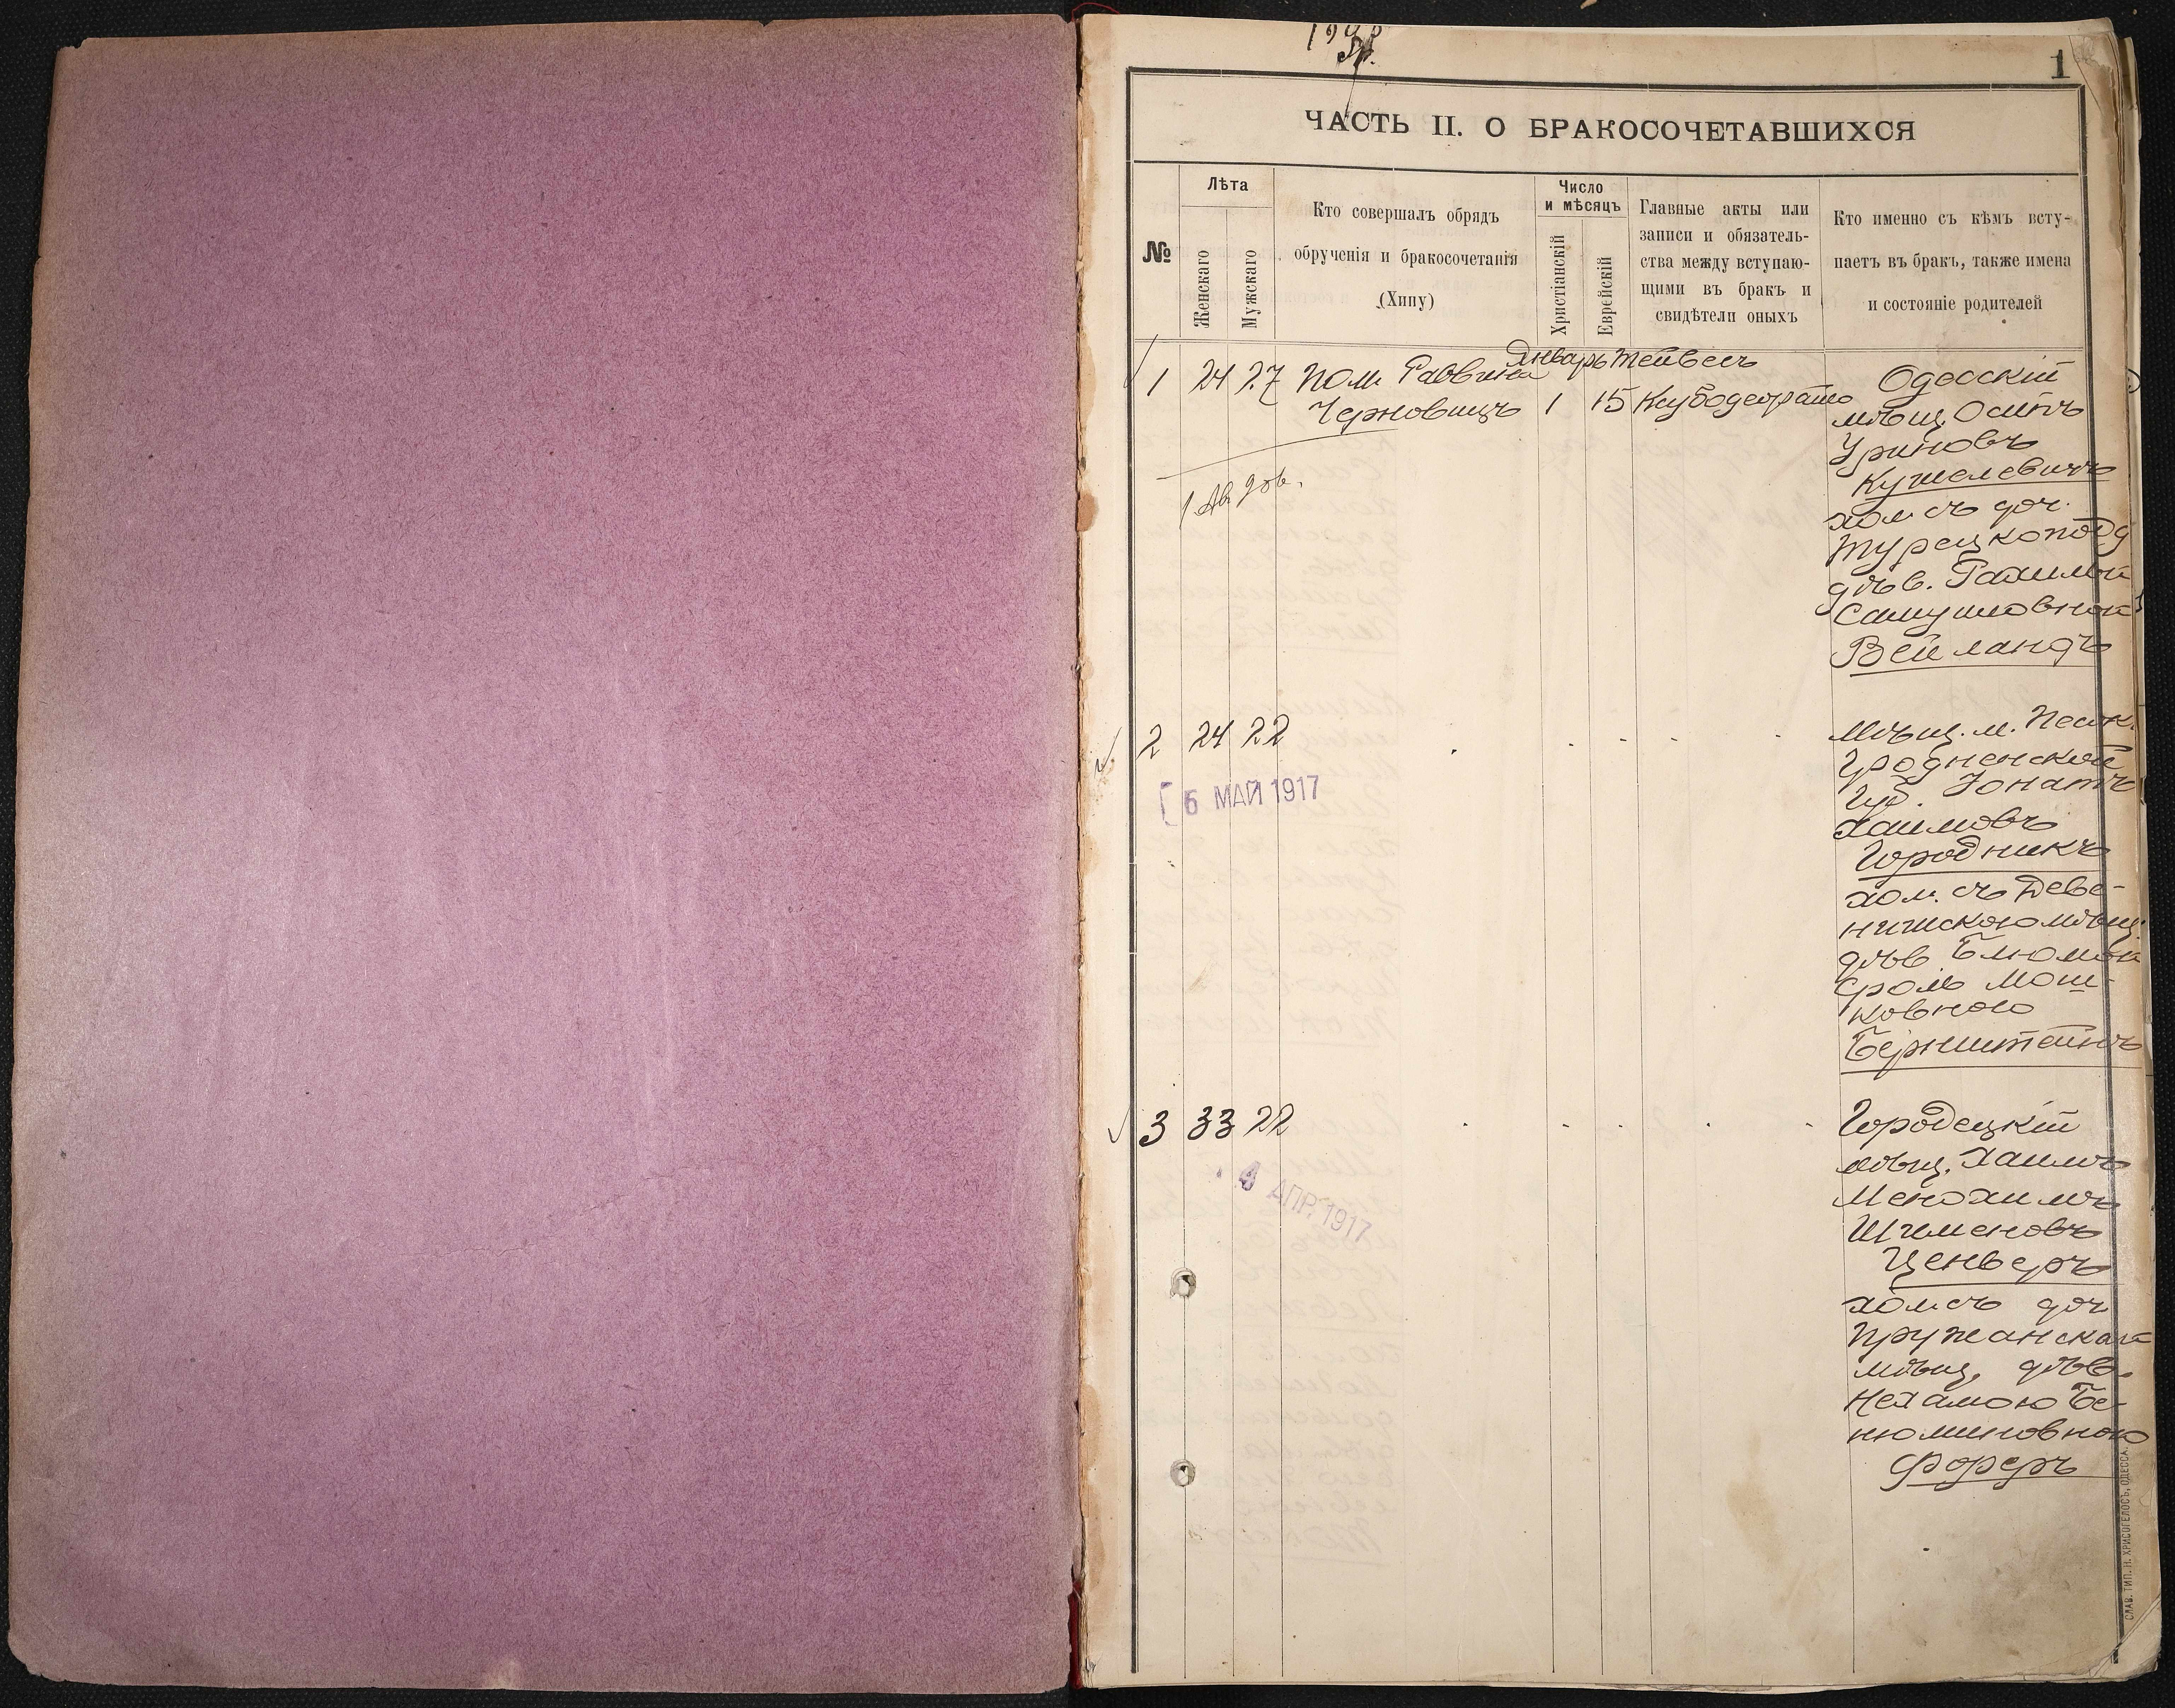 1
ЧАСТЬ II. О БРАКОСОЧЕТАВШИХСЯ
№
Лѣта
Женскаго
Мужскаго
Кто совершалъ обрядъ
обрученія и бракосочетанія
(Хипу)
Число
и мѣсяцъ
Христіанскій
Еврейскій
Главные акты или
записи и обязатель-
ства между вступаю-
щими въ бракъ и
свидѣтели оныхъ
Кто именно съ кѣмъ всту-
паетъ въ бракъ, также имена
и состояніе родителей
Январь Тейвесъ
1 24 27 Пом. Раввина
Черновицъ 1 15
Одесскій
мѣщ. Осипъ
Уриновъ
Кушелевичъ
хол. съ доч.
Турецкопод
дѣв.
Самуиловной
Вейландъ
2 24 22
6 МАЙ 1917
Мѣщ. м. Песк.
Гродненской
Губ. Іонатъ
Хаимовъ
Городникъ
хол. съ Деве-
нишскою мѣщ.
дѣв Блюмой
Мош-
ковною
Бернштейнъ
3 33 22
4 АПР. 1917
Городецкій
мѣщ. Хаимъ
Менохимъ
Шименовъ
Ценверъ
хол. съ доч
Пружанской
мѣщ. дѣв.
Нехамою Бе-
нюминовною
Фореръ
СЛАВ. ТИП. Н. ХРИСОГЕЛОСЪ, ОДЕССА.